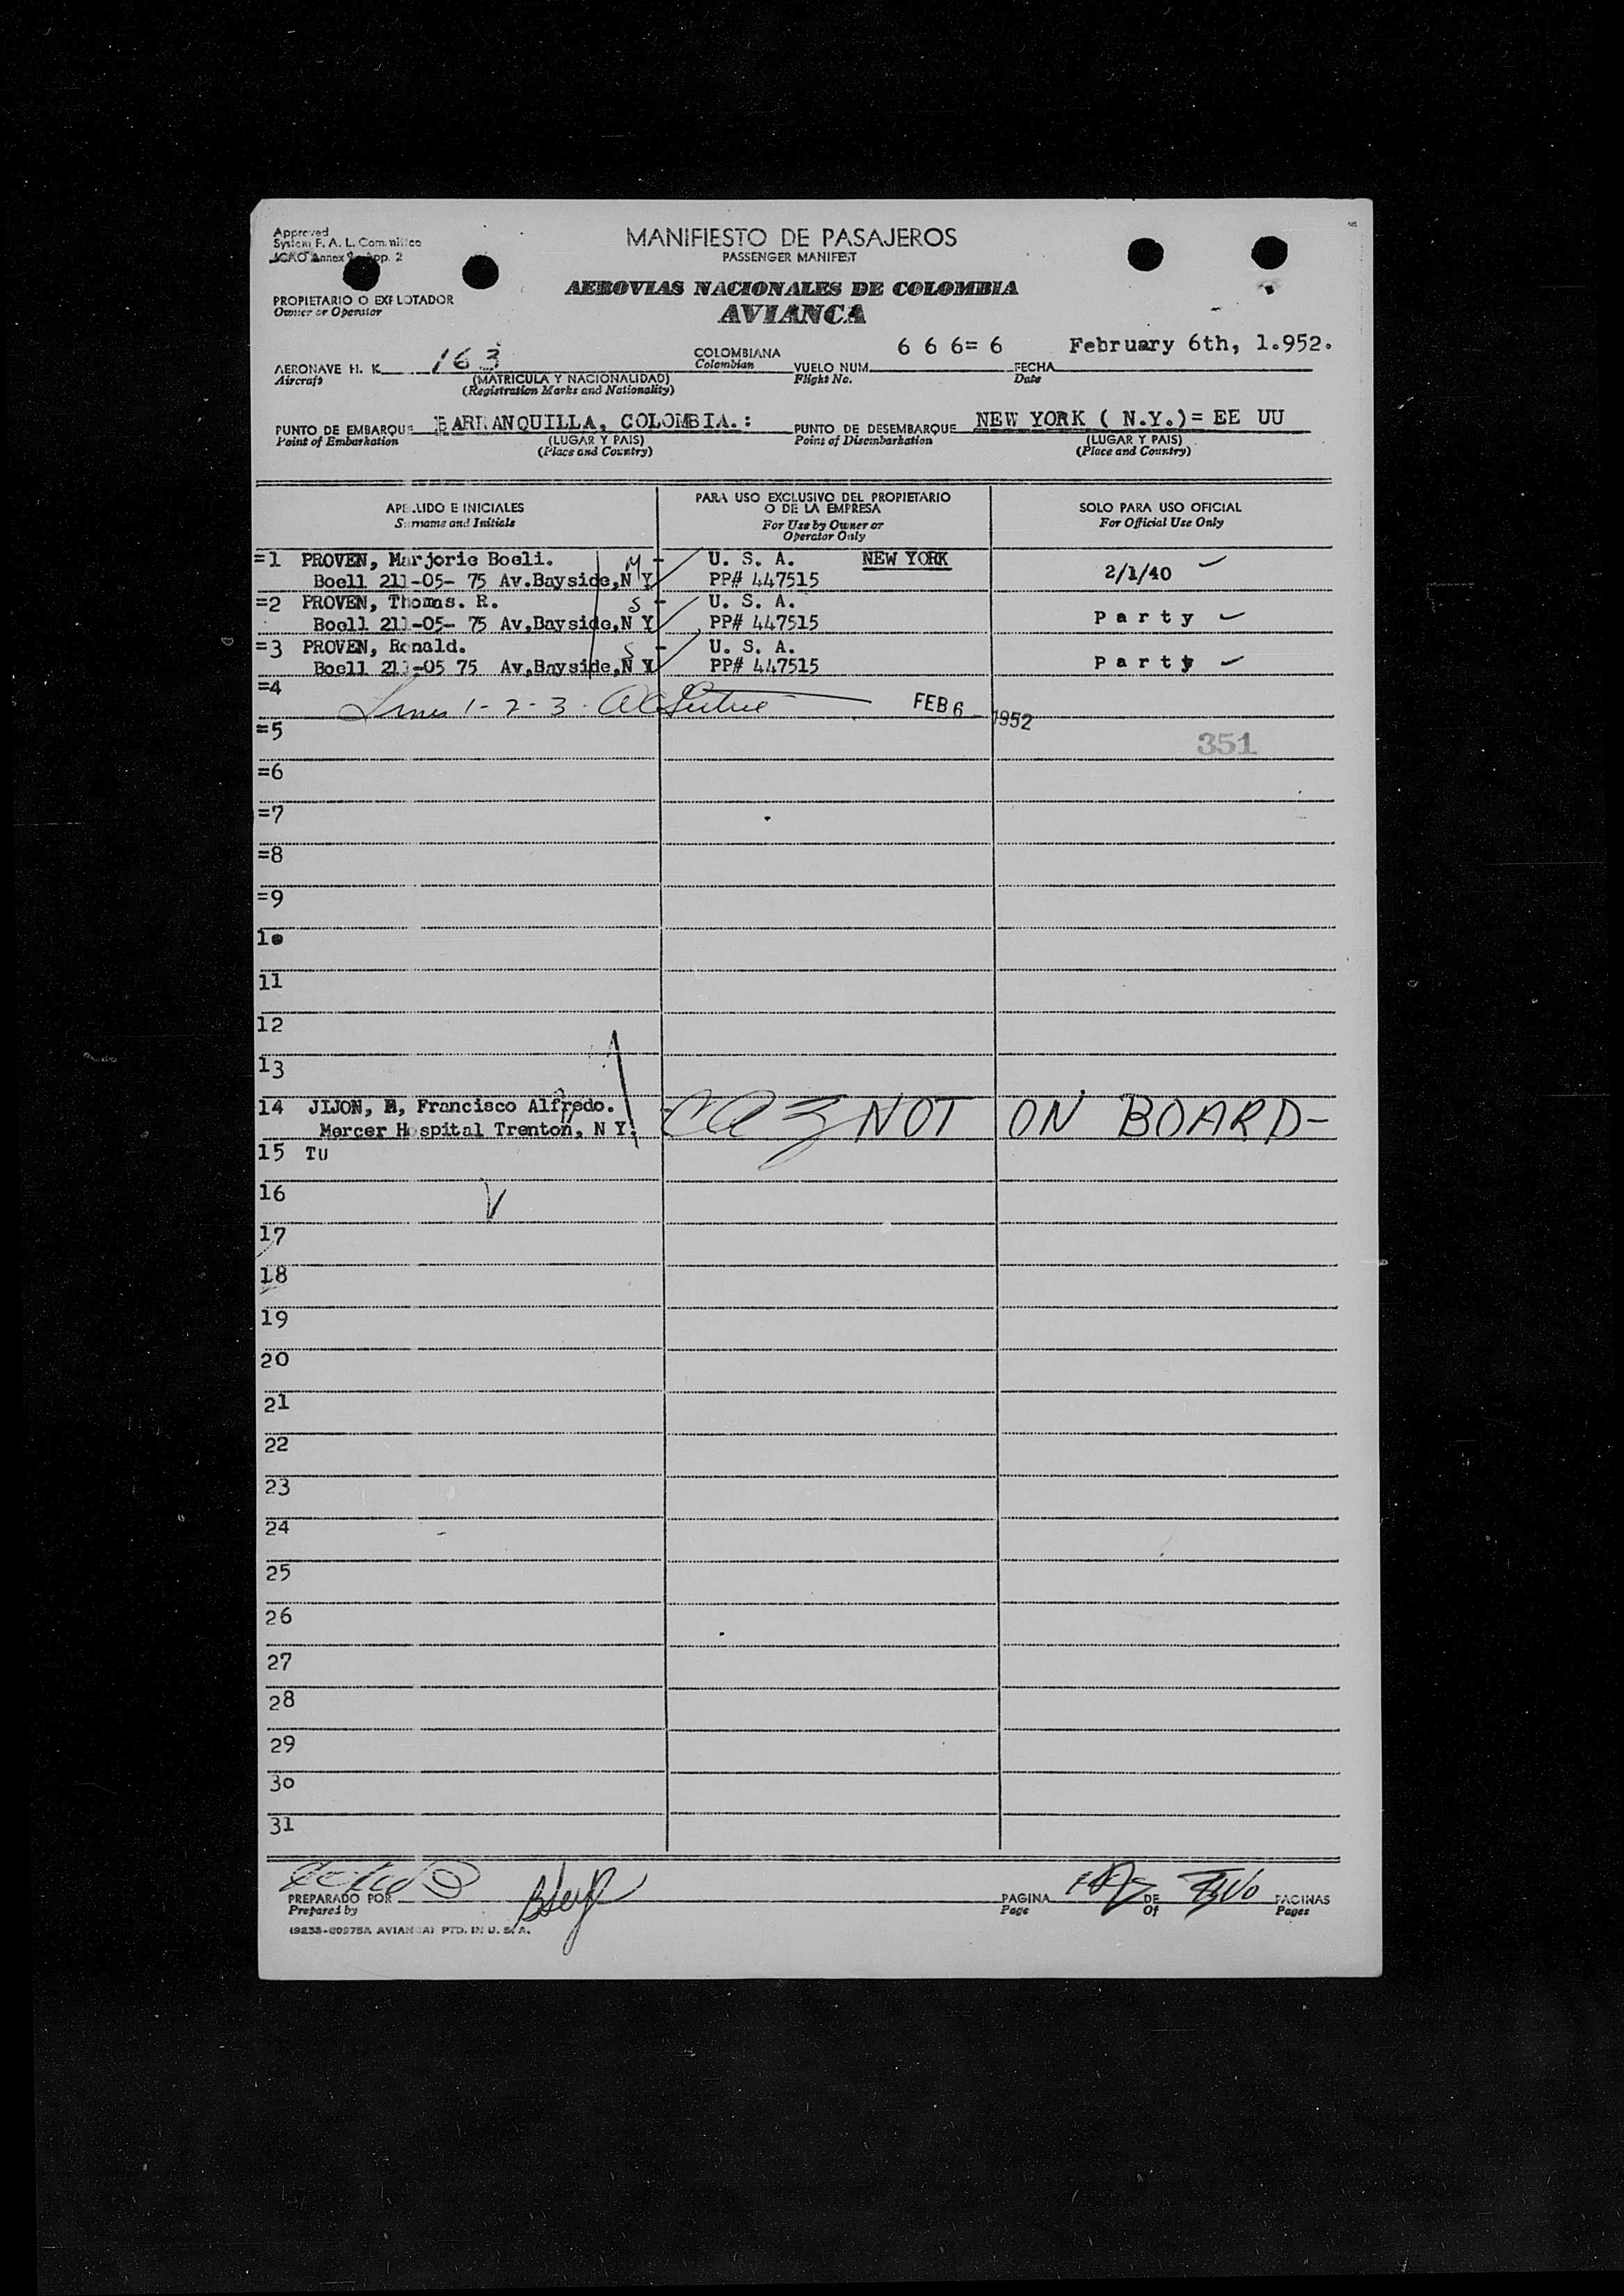 Approved
System F. A. L. Committee
ICAO Annex 9 App. 2
MANIFIESTO DE PASAJEROS
PASSENGER MANIFEST
PROPIETARIO O EXPLOTADOR
Owner or Operator
AEROVIAS NACIONALES DE COLOMBIA
AVIANCA
AERONAVE H. K. 163 COLOMBIANA VUELO NUM. 6 6 6= 6 FECHA February 6th, 1.952.
Aircraft (MATRICULA Y NACIONALIDAD) Colombian Flight No. Date
(Registration Marks and Nationality)
PUNTO DE EMBARQUE BARRANQUILLA, COLOMBIA.: PUNTO DE DESEMBARQUE NEW YORK ( N.Y.)= EE UU
Point of Embarkation (LUGAR Y PAIS) Point of Disembarkation (LUGAR Y PAIS)
(Place and Country) (Place and Country)
APELLIDO E INICIALES PARA USO EXCLUSIVO DEL PROPIETARIO SOLO PARA USO OFICIAL
Surname and Initials O DE LA EMPRESA For Official Use Only
For Use by Owner or
Operator Only
=1 PROVEN, Marjorie Boeli. M - U. S. A. NEW YORK
Boell 211-05- 75 Av.Bayside,N Y PP# 447515 2/1/40
=2 PROVEN, Thomas. R. S - U. S. A.
Boell 211-05- 75 Av,Bayside,N Y PP# 447515 P a r t y
=3 PROVEN, Ronald. S - U. S. A.
Boell 211-05 75 Av,Bayside,N Y PP# 447515 P a r t y
=4
Lines 1-2-3. FEB 6 1952
=5
351
=6
=7
=8
=9
10
11
12
13
14 JIJON, Francisco Alfredo.
Mercer Hospital Trenton, N Y. NOT ON BOARD-
15 TU
16
17
18
19
20
21
22
23
24
25
26
27
28
29
30
31
PREPARADO POR PAGINA DE PAGINAS
Prepared by Page Of Pages
(9253-60975A AVIANCA) PTD. IN U. S. A.